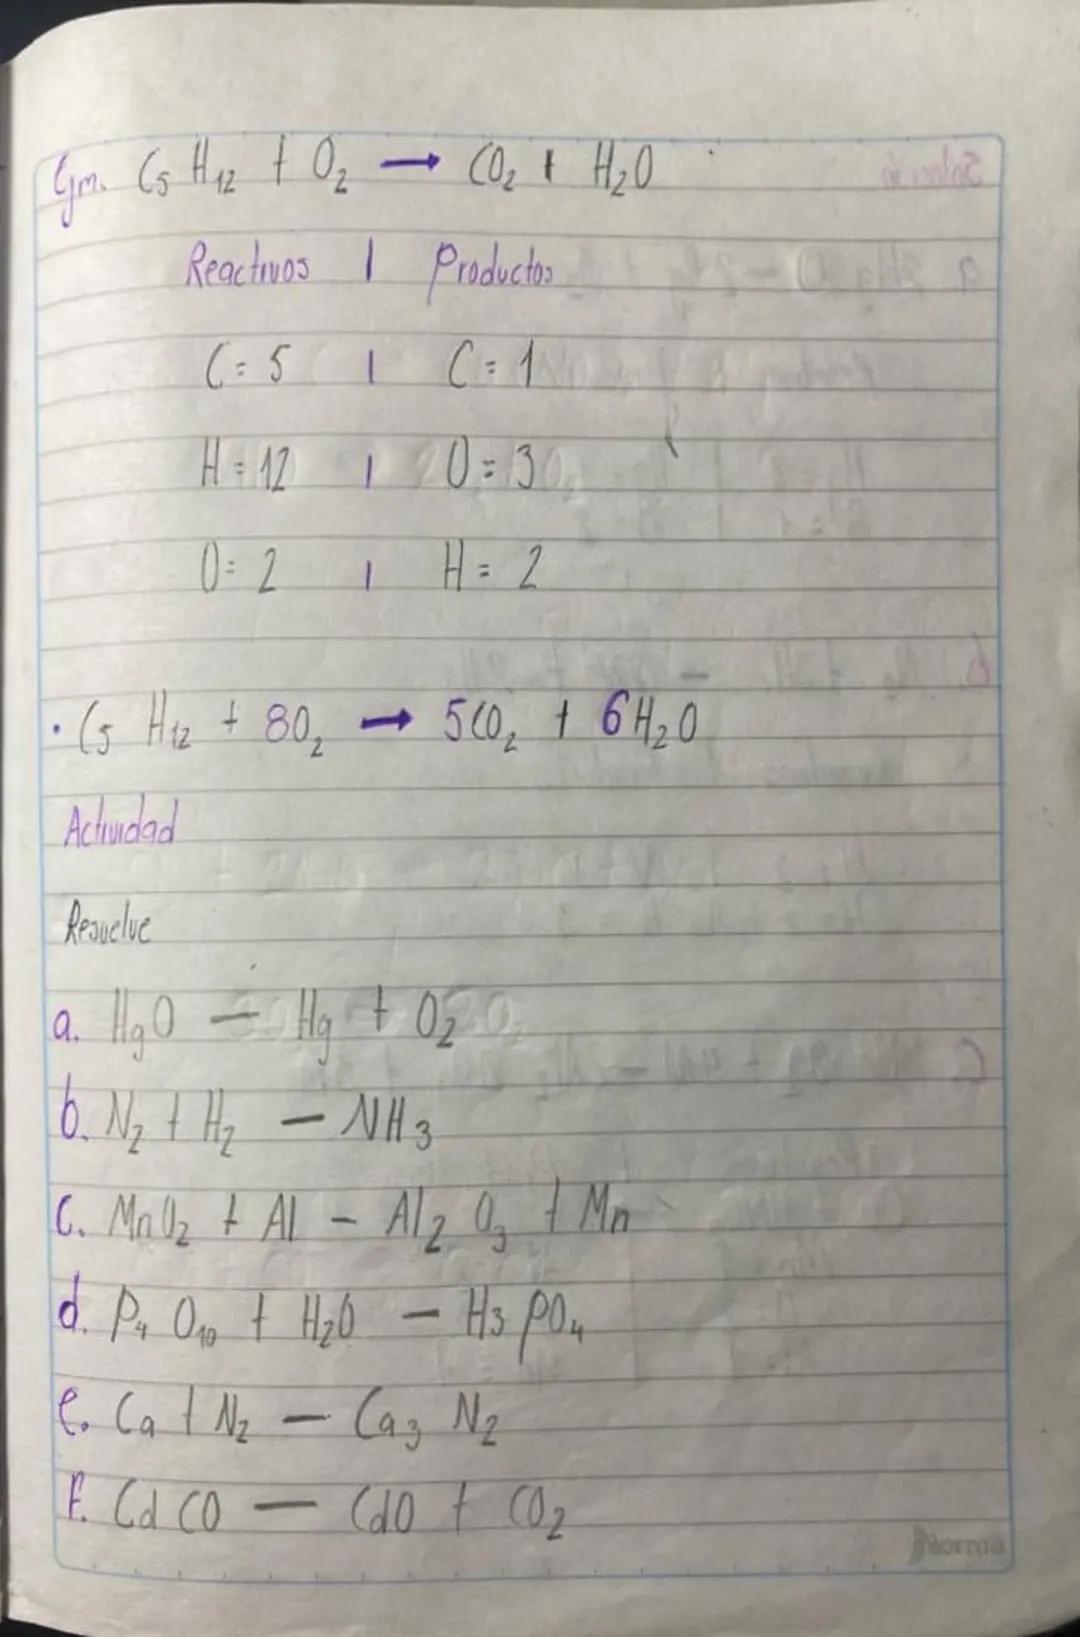 C5 H12 + O2 → CO2 + H2O
Reactivos | Productos
C = 5 | C = 1
H = 12 | O = 3
O = 2 | H = 2
· C5 H12 + 8O2 → 5CO2 + 6H2O
Actividad
Resuelve
a. HgO — Hg + O2
b. N2 + H2 — NH3
c. MnO2 + Al — Al2 O3 + Mn
d. P4 O10 + H2O — H3 PO4
e. Ca + N2 — Ca3 N2
f. Cd CO — CdO + CO2
Norma